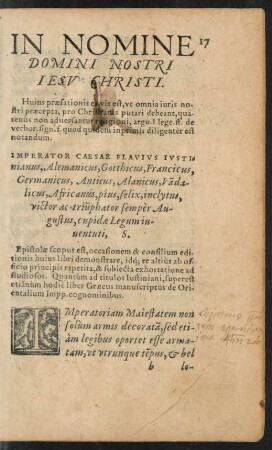 IN NOMINE 17
DOMINI NOSTRI
IESV CHRISTI.
Huius præfationis ea vis est, vt omnia iuris no-
stri præcepta, pro Christianis putari debeant, qua-
tenus non aduersantur religioni, arg. l. lege. ff. de
verbor. sign. f. quod quidem inprimis diligenter est
notandum.
IMPERATOR CAESAR FLAVIVS IVSTI
nianus, Alemanicus, Gotthicus, Francicus,
Germanicus, Anticus, Alanicus, Vãda-
licus, Africanus, pius, felix, inclytus,
victor ac triũphator semper Au-
gustus, cupidæ Legum iu-
uentuti, S.
Epistolæ scopus est, occasionem & consilium edi
tionis huius libri demonstrare, idq; re altius ab of-
ficio principis repetita, & subiecta exhortatione ad
studiosos. Quantum ad titulos Iustiniani, superest
etiamnum hodie liber Græcus manuscriptus de Ori-
entalium Impp. cognominibus.
IMperatoriam Maiestatem non
solùm armis decoratã, sed eti-
àm legibus oportet esse arma-
tam, vt vtrunque tẽpus, & bel
b lo-